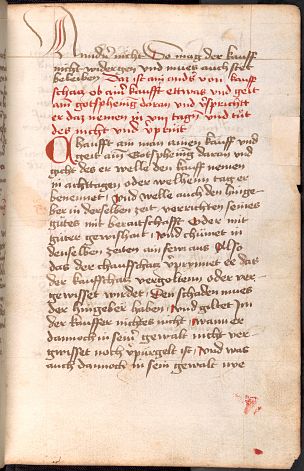 nicht Do mag der kauff
nicht widergen vnd mues auch stet
beleiben Daz ist ain ands von kauff
schatz ob ainr kaufft ettwas vnd geit
ain gotsphenig daran vnd verspricht
er daz nemen in viij tagn vnd tut
des nicht vnd
kaufft ain man ainen kauff vnd
geit ain Gotsphening daran vnd
gicht des er welle den kauff nemen
in achttagen oder welhenn tag er
benennet vnd welle auch den hinge
ber in derselben zeit verrichten seines
gutes mit beraitschafft Oder mit
guter gewishait vnd chumet in
denselben zeiten nicht Also
das der chauffschatz er das
der kauffschatz vergolten oder ver
gewisset wirdet Den schaden mues
der hingeber haben vnd giltet Im
der kauffer nichtes nicht wann er
dannoch in seiner gewalt nicht ver
gwisset noch verpurgelt ist vnd was
auch dannoch in sein gewalt